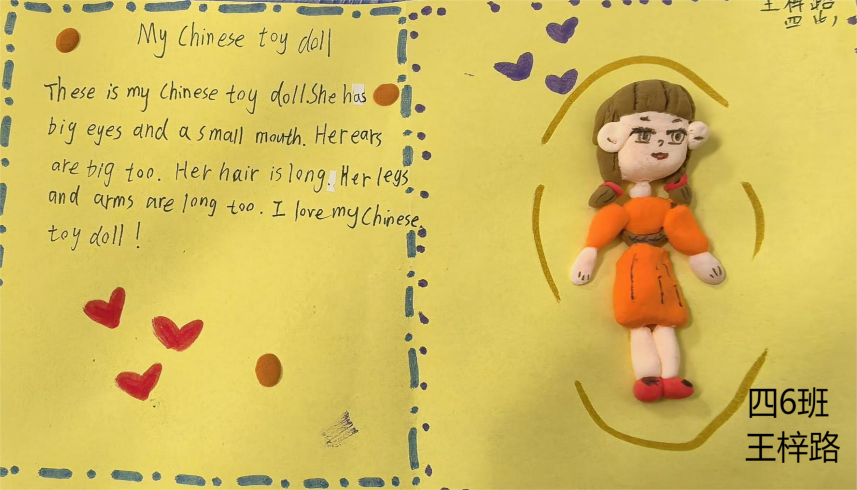 My Chinese toy doll
These is my Chinese toy doll.She has
big eyes and a small mouth. Her ears
are big too. Her hair is long. Her legs
and arms are long too. I love my Chinese
toy doll!
王梓路
四6班
王梓路